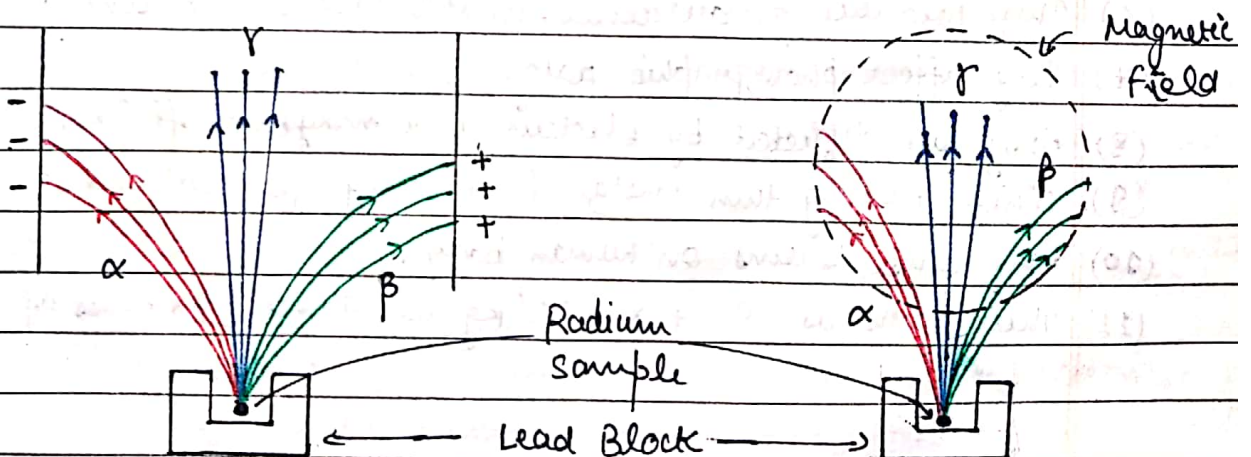 γ
Magnetic
field
γ
-
-
-
+
+
+
β
α
β
α
Radium
sample
Lead Block